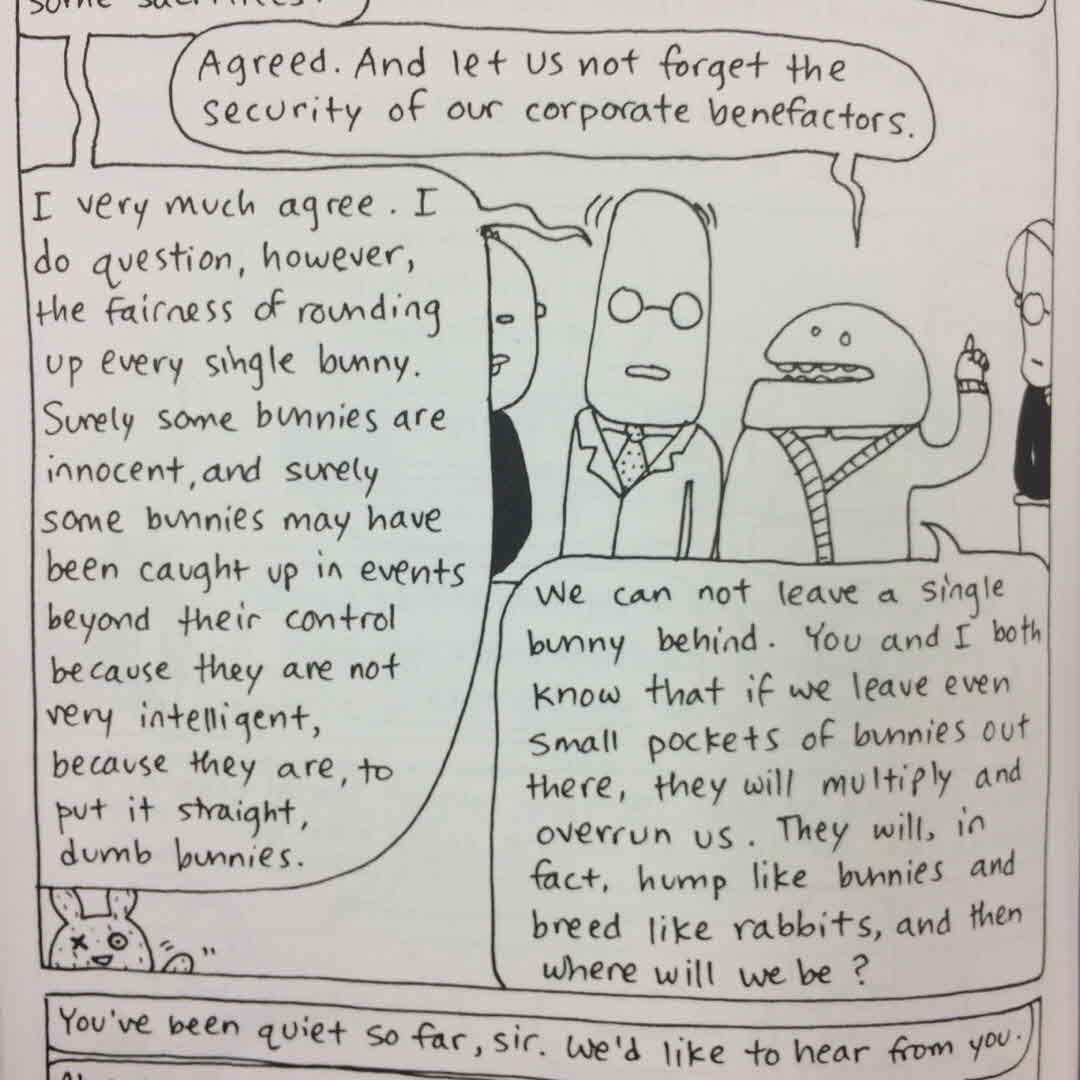 Agreed. And let us not forget the
security of our corporate benefactors.
I very much agree. I
do question, however,
the fairness of rounding
up every single bunny.
Surely some bunnies are
innocent, and surely
some bunnies may have
been caught up in events
beyond their control
because they are not
very intelligent,
because they are, to
put it straight,
dumb bunnies.
We can not leave a single
bunny behind. You and I both
know that if we leave even
small pockets of bunnies out
there, they will multiply and
overrun us. They will, in
fact, hump like bunnies and
breed like rabbits, and then
where will we be?
You've been quiet so far, sir. We'd like to hear from you.